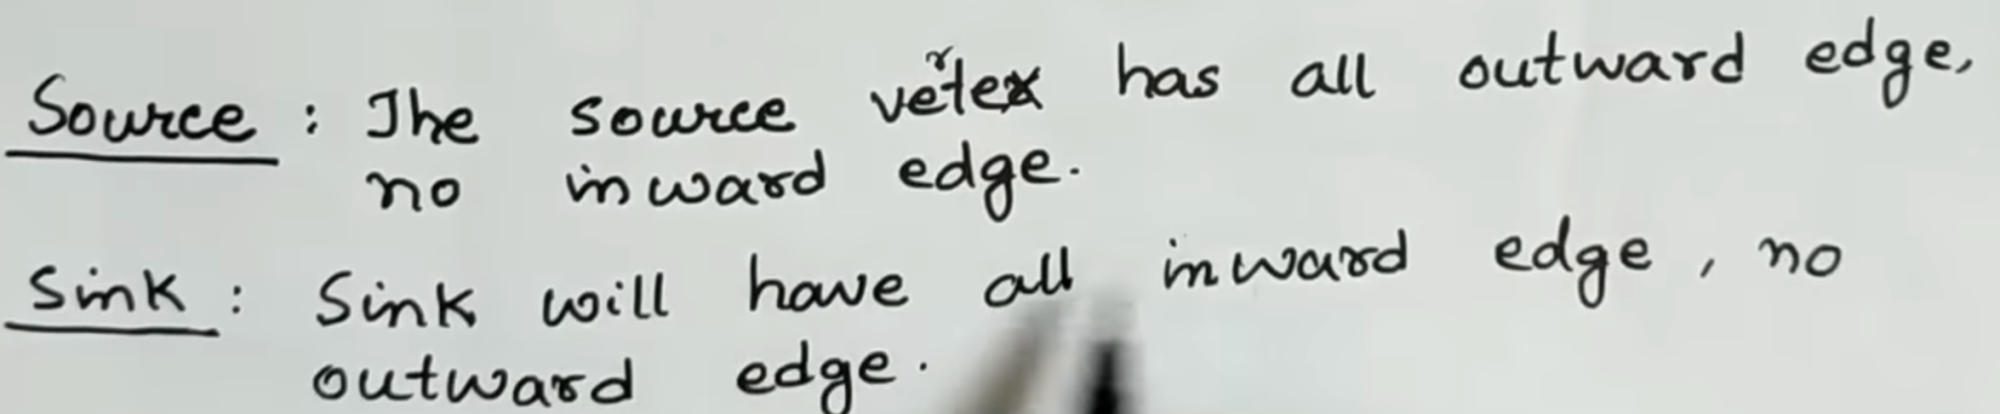 Source : The source vertex has all outward edge,
no inward edge.
Sink : Sink will have all inward edge, no
outward edge.